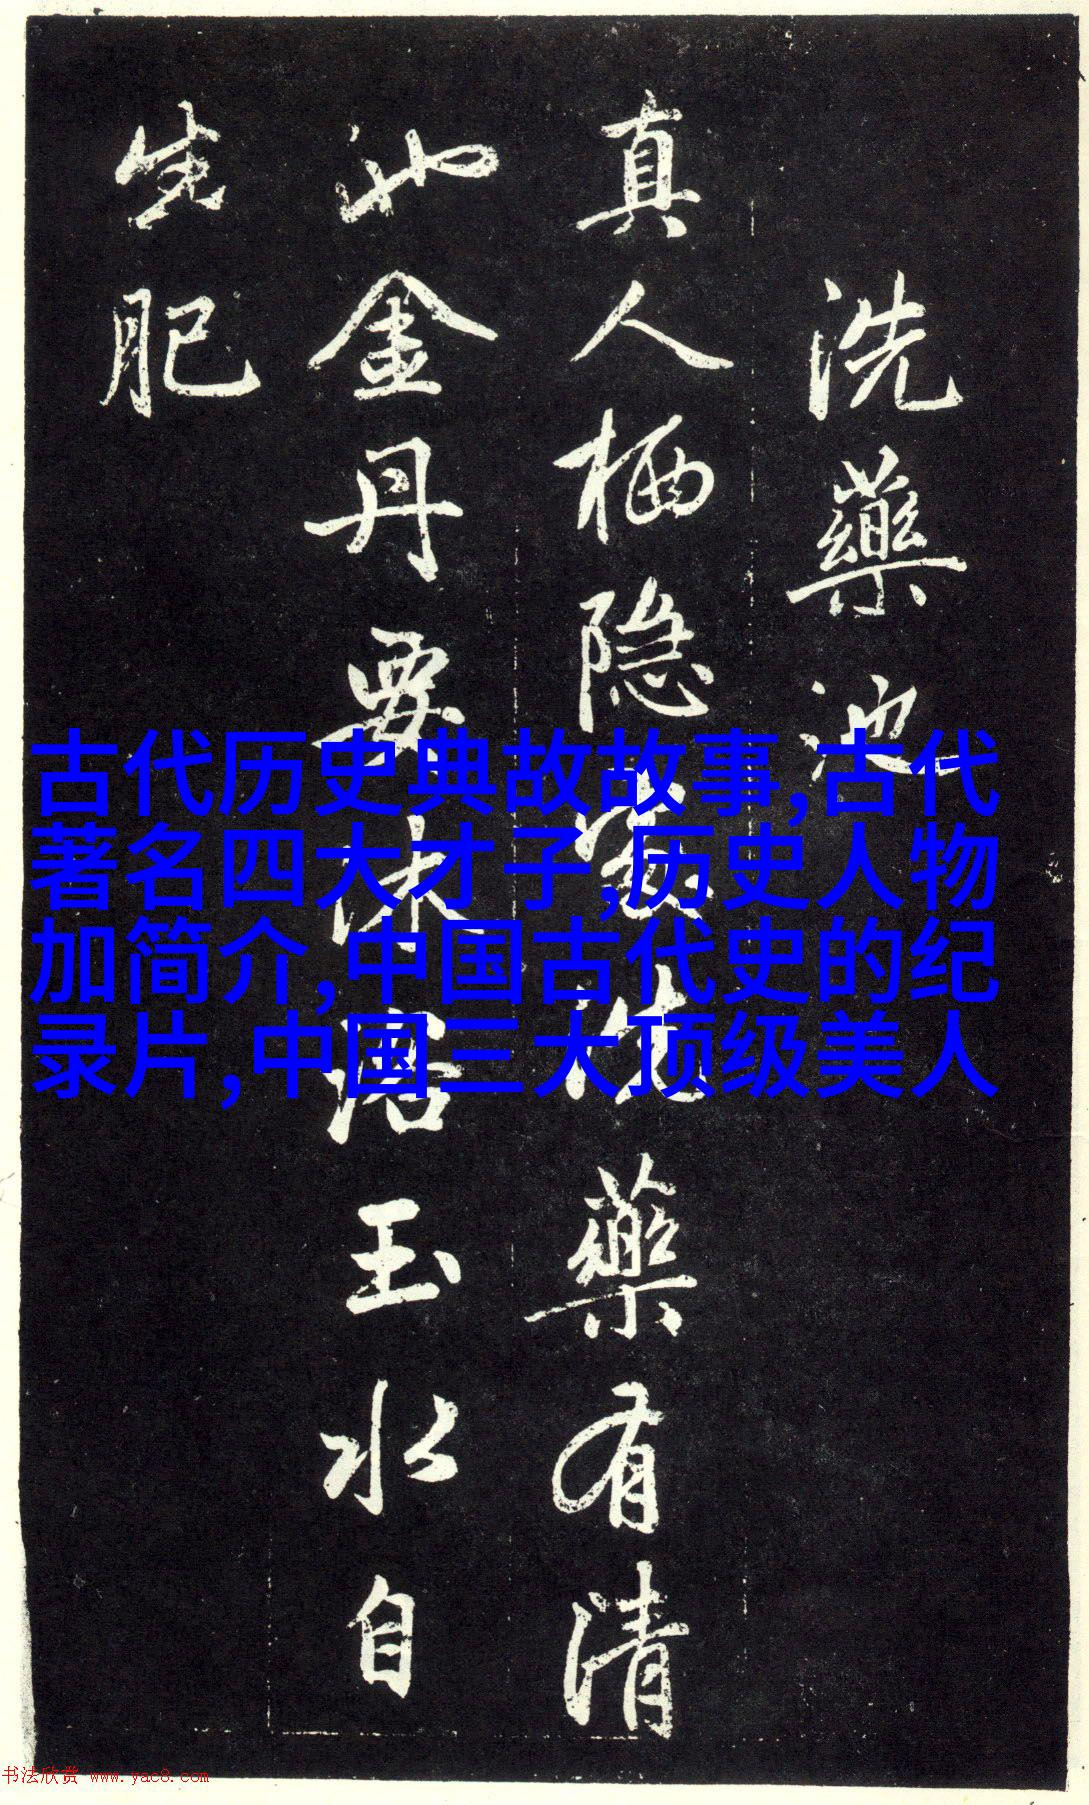 洗藥池
真人栖隐處洗藥有清
池金丹要沐浴玉水自
生肥
古代历史典故故事,古代
著名四大才子,历史人物
加简介,中国古代史的纪
录片,中国三大顶级美人
书法欣赏 www.yac8.com